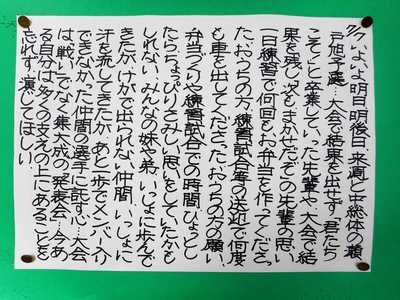 7/9いよいよ明日明後日、来週と中総体の瀬
戸旭予選…大会で結果を出せず、君たち
こそ〜と卒業していった先輩や、大会で結
果を残し次をまかせたぞの先輩の思い
一日練習で何回もお弁当を作ってくださっ
た、おうちの方、練習試合等の送迎で何度
も車を出してくださった、おうちの方の願い、
弁当づくりや練習試合での時間、ひょっとし
たらちょっぴりさみしい思いをしていたかも
しれない、みんなの妹や弟、いっしょに歩んで
きたがけがで出られない仲間、いっしょに
汗を流してきたが、あと一歩でメンバー入り
できなかった仲間の選手に託す…大会
は戦いでなく集大成の発表会…今あ
る自分は多くの支えの上にあることを
忘れず、演じてほしい。